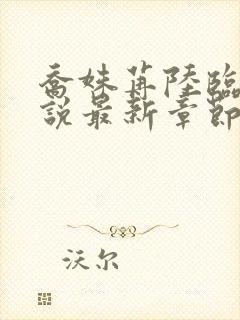 喬姝苒陸臨
說最新章節
沃尔